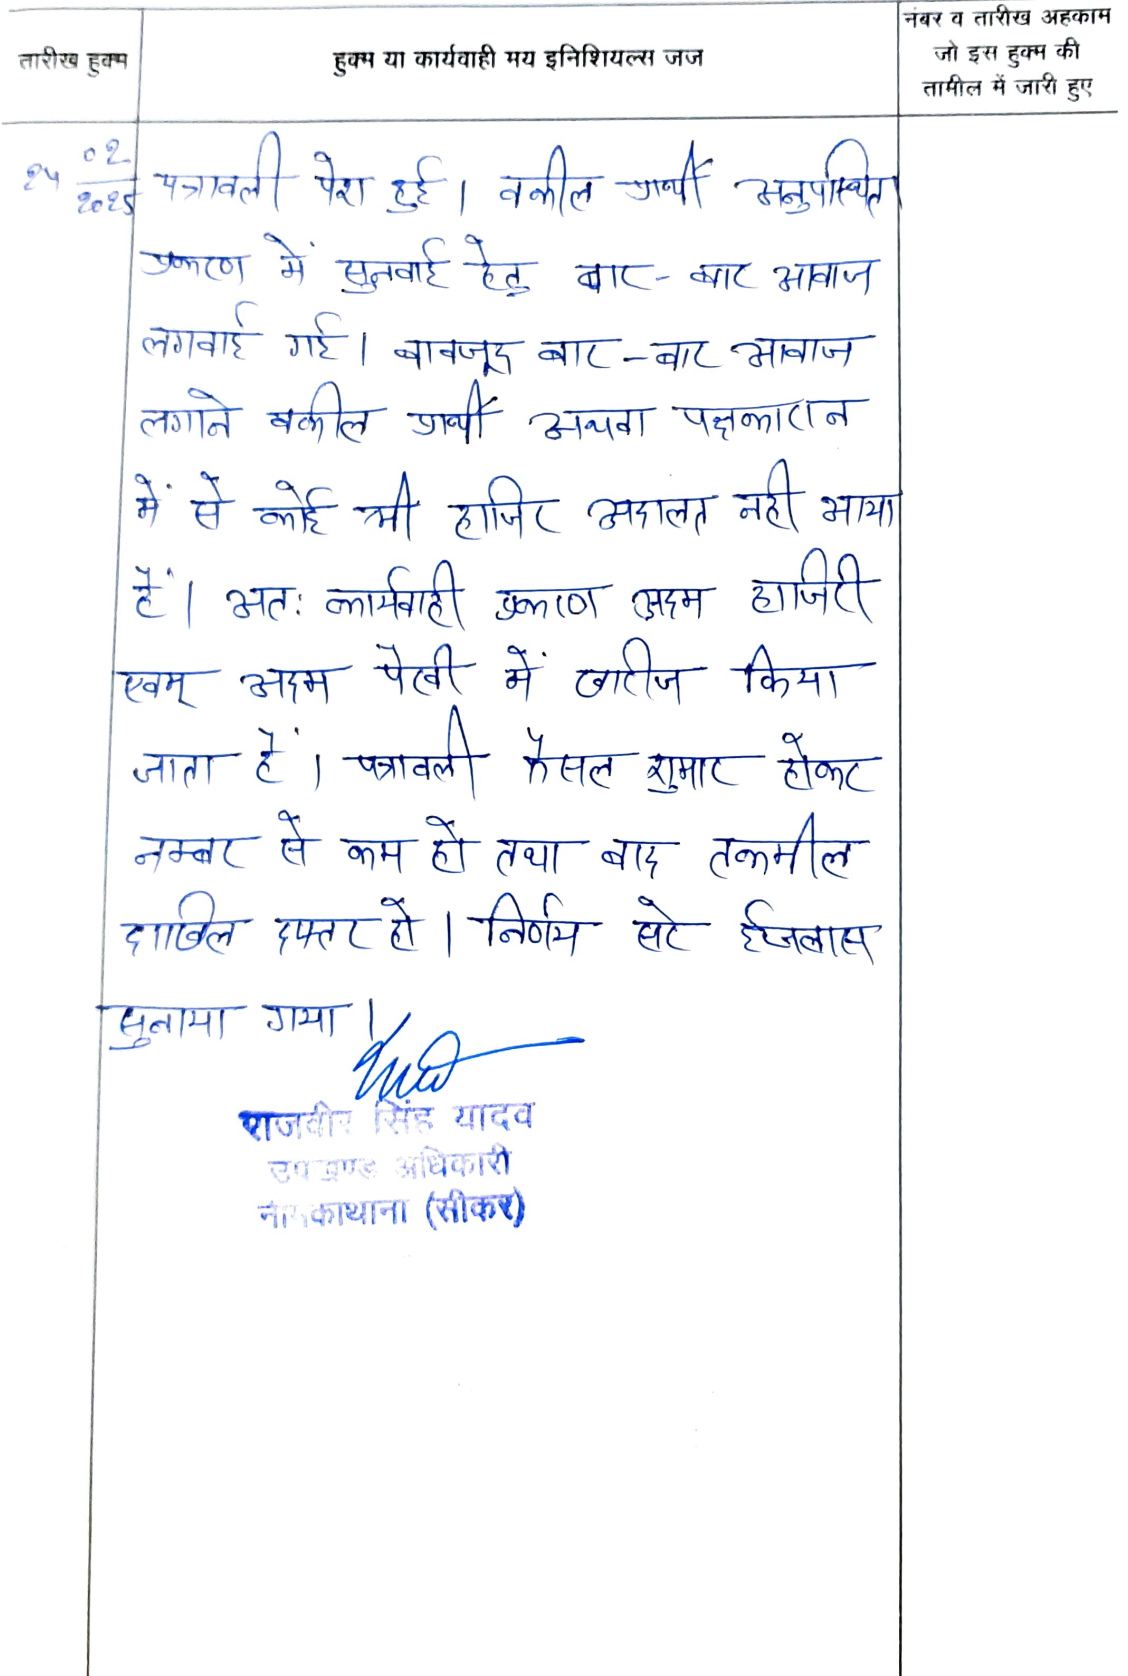 तारीख हुक्म
हुक्म या कार्यवाही मय इनिशियल्स जज
नंबर व तारीख अहकाम
जो इस हुक्म की
तामील में जारी हुए
24 02
2025
पत्रावली पेश हुई। वकील प्रार्थी अनुपस्थित
प्रकरण में सुनवाई हेतु बार-बार आवाज
लगवाई गई। बावजूद बार-बार आवाज
लगाने वकील प्रार्थी अथवा पक्षकारान
में से कोई भी हाजिर अदालत नही आया
हैं। अत: कार्यवाही प्रकरण अदम हाजिरी
एवम् अदम पैरवी में खारीज किया
जाता हैं। पत्रावली फैसल शुमार होकर
नम्बर से कम हो तथा बाद तकमील
दाखिल दफ्तर हो। निर्णय सरे ईजलास
सुनाया गया।
राजवीर सिंह यादव
उपखण्ड अधिकारी
नीमकाथाना (सीकर)